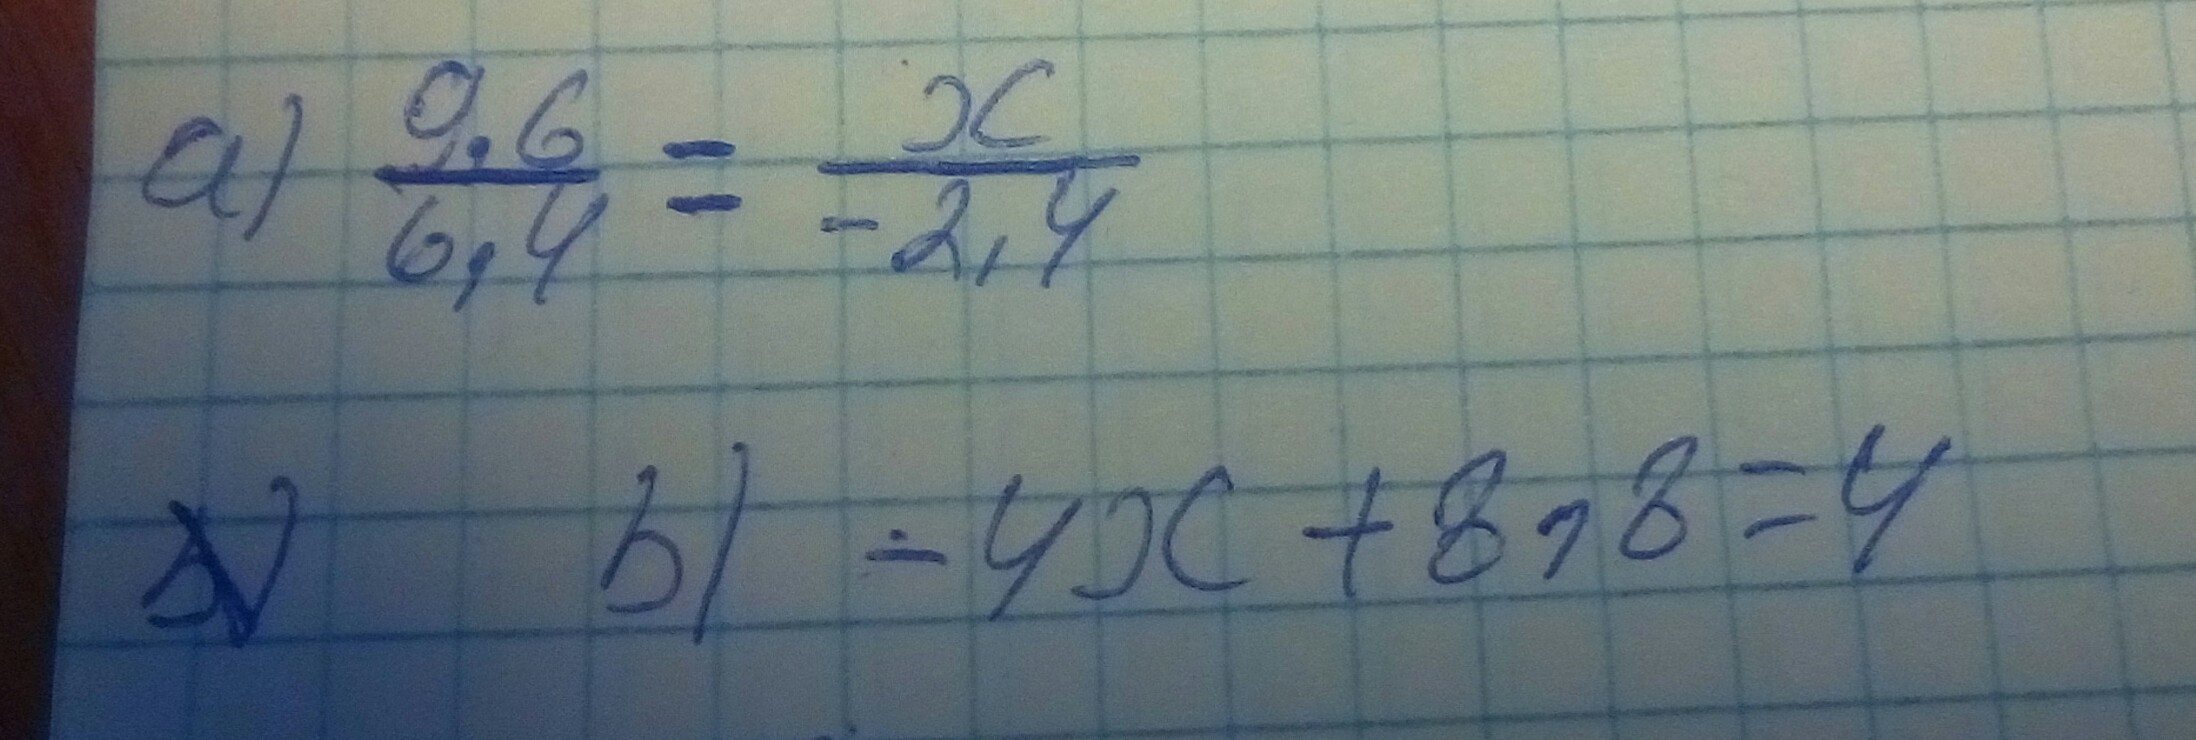 a) 9,6/6,4 = x/-2,4
b) -4x + 8,8 = 4